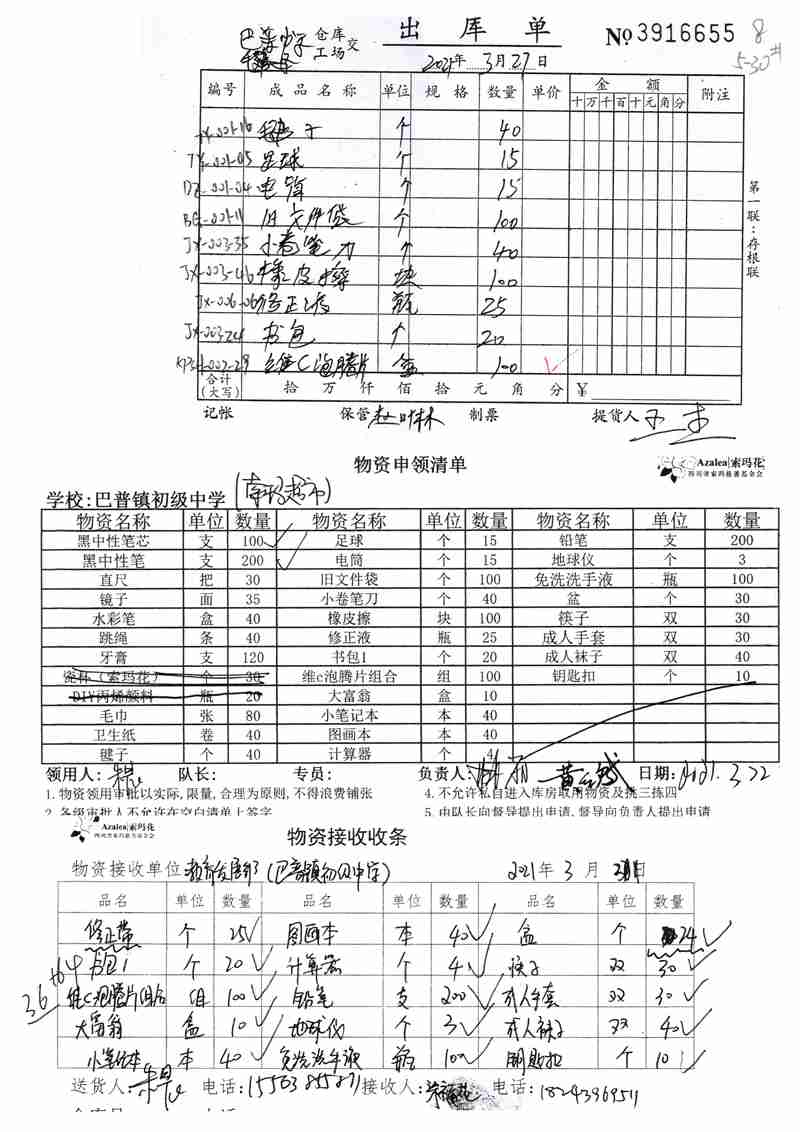 出 库 单
仓库
工场 交
№ 3916655 8
5-30#
2021年3月27日
编号 成品名称 单位 规格 数量 单价 金额 附注
十 万 千 百 十 元 角 分
毽子 个 40
TY-001-05 足球 个 15
DZ-001-04 电筒 个 15
BG-001-11 旧文件袋 个 100
JX-003-35 小卷笔刀 个 40
JX-003-46 橡皮擦 块 100
JX-006-06 修正液 瓶 25
JX-003-24 书包 个 20
维C泡腾片 盒 100
合计(大写) 拾 万 仟 佰 拾 元 角 分 ¥
第一联:存根联
记帐 保管 制票 提货人
物资申领清单
Azalea 索玛花
四川省索玛慈善基金会
学校:巴普镇初级中学
物资名称 单位 数量 物资名称 单位 数量 物资名称 单位 数量
黑中性笔芯 支 100 足球 个 15 铅笔 支 200
黑中性笔 支 200 电筒 个 15 地球仪 个 3
直尺 把 30 旧文件袋 个 100 免洗洗手液 瓶 100
镜子 面 35 小卷笔刀 个 40 盆 个 30
水彩笔 盒 40 橡皮擦 块 100 筷子 双 30
跳绳 条 40 修正液 瓶 25 成人手套 双 30
牙膏 支 120 书包1 个 20 成人袜子 双 40
瓷杯(索玛花) 个 30 维c泡腾片组合 组 100 钥匙扣 个 10
DIY丙烯颜料 瓶 20 大富翁 盒 10
毛巾 张 80 小笔记本 本 40
卫生纸 卷 40 图画本 本 40
毽子 个 40 计算器 个 4
领用人: 队长: 专员: 负责人: 日期:2021.3.22
1.物资领用审批以实际,限量,合理为原则,不得浪费铺张 4.不允许私自进入库房取用物资及挑三拣四
2.各级审批人不允许在空白清单上签字 5.由队长向督导提出申请,督导向负责人提出申请
Azalea 索玛花
四川省索玛慈善基金会
物资接收收条
物资接收单位 教育发展部(巴普镇初级中学) 2021年3月 日
品名 单位 数量 品名 单位 数量 品名 单位 数量
修正带 个 25 图画本 本 40 盆 个 24
书包1 个 20 计算器 个 4 筷子 双 30
维C泡腾片组合 组 100 铅笔 支 200 成人手套 双 30
大富翁 盒 10 地球仪 个 3 成人袜子 双 40
小笔记本 本 40 免洗洗手液 瓶 100 钥匙扣 个 10
36#
送货人: 电话:15563855871 接收人: 电话:18243969511